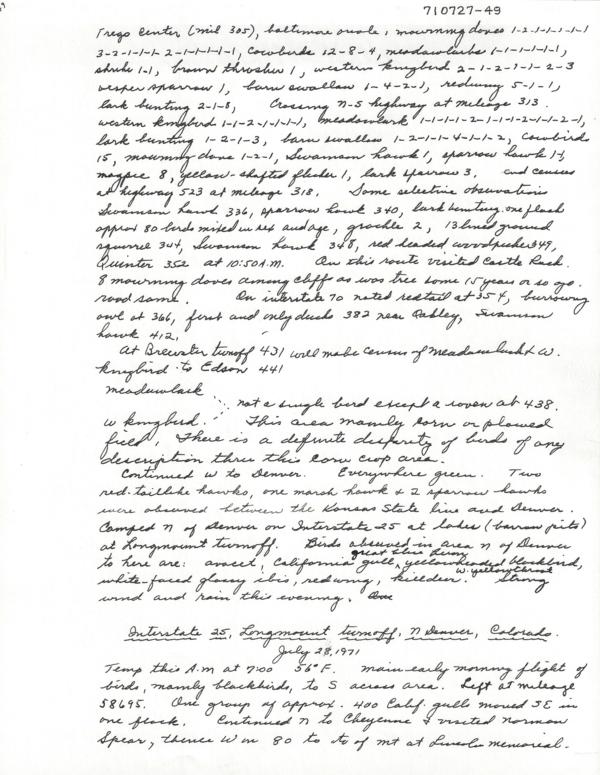 710727-49
Trego Center (mil 305), baltimore oriole 1, mourning doves 1-2-1-1-1-1-1
3-2-1-1-1-2-1-1-1-1-1, Cowbirds 12-8-4, meadowlarks 1-1-1-1-1-1,
shrike 1-1, brown thrasher 1, western kingbird 2-1-2-1-1-2-3
vesper sparrow 1, barn swallow 1-4-2-1, redwing 5-1-1,
lark bunting 2-1-8, Crossing N-S highway at mileage 313.
western kingbird 1-1-2-1-1-1-1, meadowlark 1-1-1-1-2-1-1-1-2-1-1-2-1,
lark bunting 1-2-1-3, barn swallow 1-2-1-1-4-1-1-2, Cowbirds
15, mourning dove 1-2-1, Swainson hawk 1, sparrow hawk 1-1,
magpie 8, yellow-shafted flicker 1, lark sparrow 3, end census
at highway 523 at mileage 318. Some selective observations
Swainson hawk 336, sparrow hawk 340, lark bunting, one flock
approx 80 birds mixed in sex and age, grackle 2, 13 lined ground
squirrel 344, Swainson hawk 348, red headed woodpecker 349,
Quinter 352 at 10:50 A.M. On this route visited Castle Rock.
8 mourning doves among cliff as was tree some 15 years or so ago.
road same. On interstate 70 noted redtail at 354, burrowing
owl at 366, first and only ducks 382 near Oakley, Swainson
hawk 412.
At Brewster turnoff 431 will make census of meadowlark & W.
kingbird to Edson 441
meadowlark
not a single bird except a raven at 438.
w kingbird This area mainly corn or plowed
field. There is a definite disparity of birds of any
description thru this corn crop area.
Continued W to Denver. Everywhere green. Two
red-taillike hawks, one marsh hawk & 2 sparrow hawks
were observed between the Kansas State line and Denver.
Camped N of Denver on Interstate 25 at lakes (barrow pits)
at Longmount turnoff. Birds observed in area N of Denver
great blue heron
to here are: avocet, California gull, yellowheaded blackbird,
w. yellowthroat
white-faced glossy ibis, redwing, killdeer. Strong
wind and rain this evening.
Interstate 25, Longmount turnoff, N Denver, Colorado.
July 28, 1971
Temp this A.M at 7:00 56°F. main early morning flight of
birds, mainly blackbirds, to S across area. Left at mileage
58695. One group of approx. 400 Calif. gulls moved SE in
one flock. Continued N to Cheyenne & visited Norman
Spear, thence W on 80 to top of mt at Lincoln memorial.